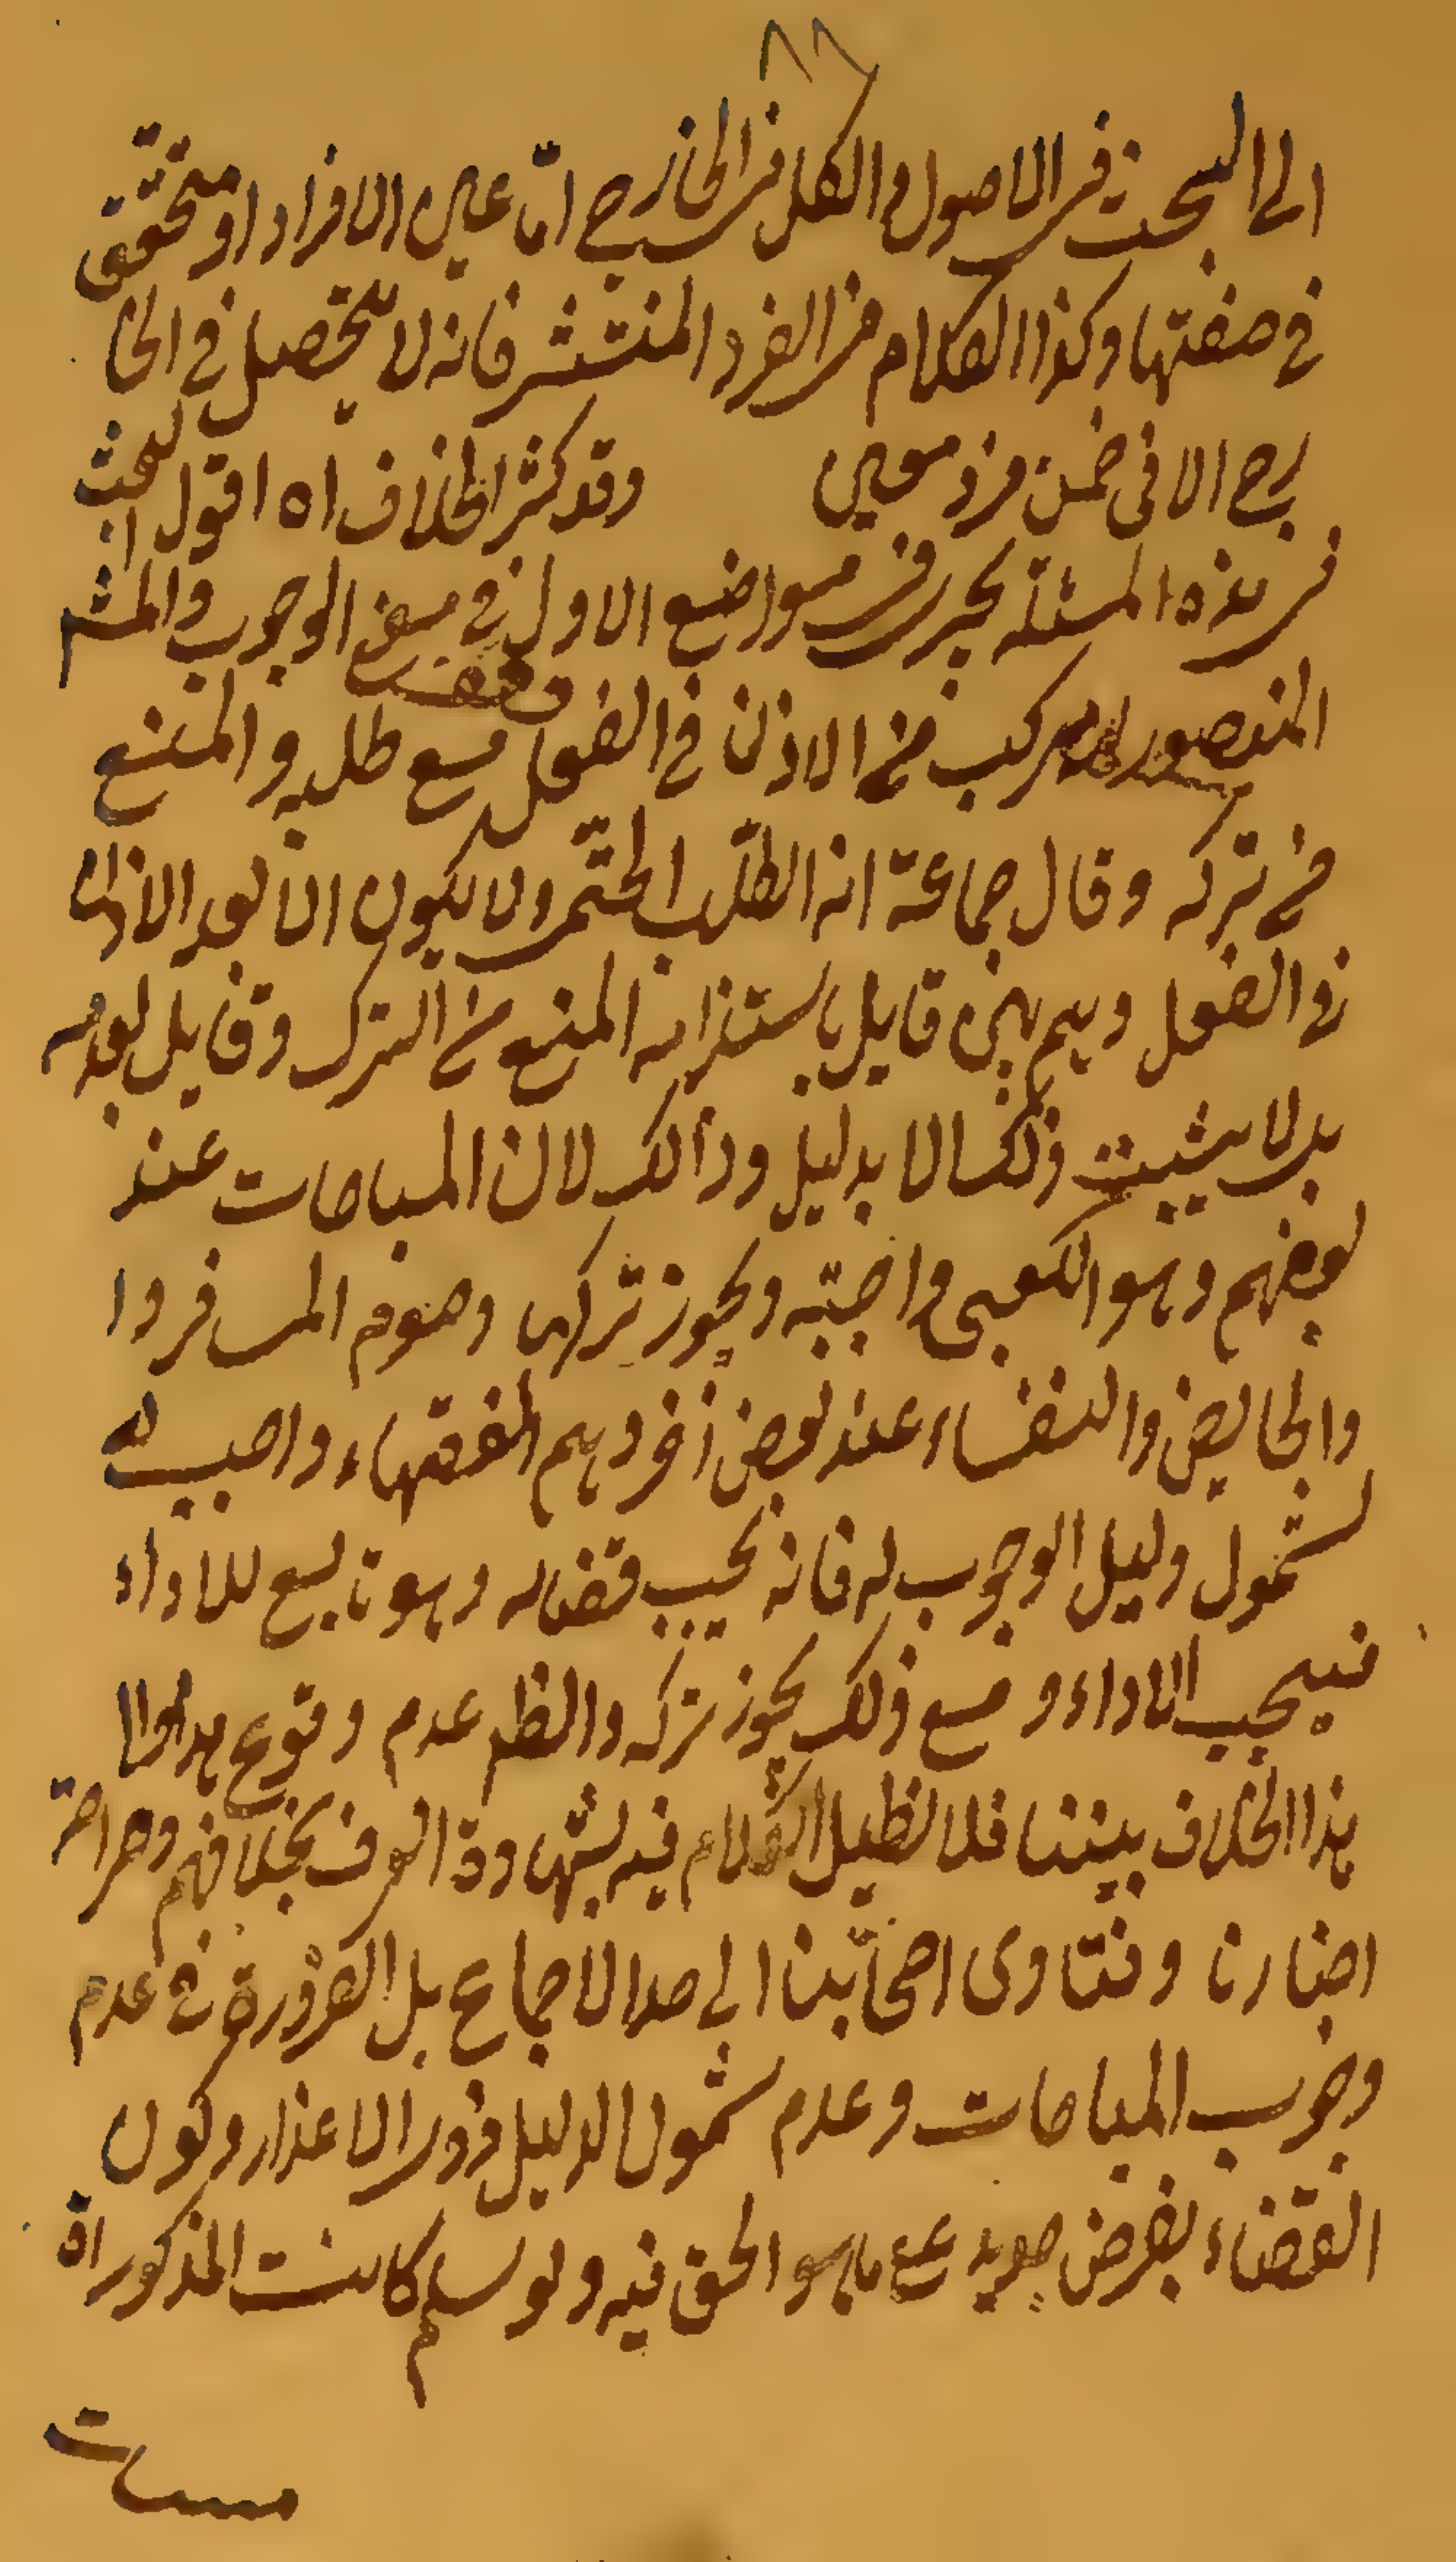 ٨٦
الى البحث في الاصول والكلي في الخارج امّا عين الافراد او متحقق
في صفتها وكذا الكلام في الفرد المنتشر فانه لا يتحصل في الخا
رج الا في ضمن فرد معين وقد كثر الخلاف اه اقول البحث
في هذه المسئلة يحرر في مواضع الاول في معنى الوجوب والمشم
المنصور مركب من الاذن في الفعل مع طلبه والمنع
من تركه وقال جماعة انه الطلب الحتمى ولا يكون الا بعد الاذن
في الفعل وهم بين قايل باستلزامه المنع من الترك وقايل بعدمه
بل لا يثبت ذلك الا بدليل وذالك لان المباحات عند
بعضهم وهو الكعبى واجبة ويجوز تركها وصوم المسافر وا
والحايض والنفساء عند بعض اخر وهم الفقهاء واجب
لشمول دليل الوجوب له فانه يجب قضاؤه وهو تابع للاداء
فيجب الاداء ومع ذلك يجوز تركه والظم عدم وقوع
هذا الخلاف بيننا فلا نطيل الكلام فيه لشهادة العرف بخلافهم وصراحة
اخبارنا وفتاوى اصحابنا الى حد الاجماع بل الضرورة في عدم
وجوب المباحات وعدم شمول الدليل ذوى الاعذار وكون
القضاء بفرض جديد على ما هو الحق فيه ولو سلم كانت المذكوراة